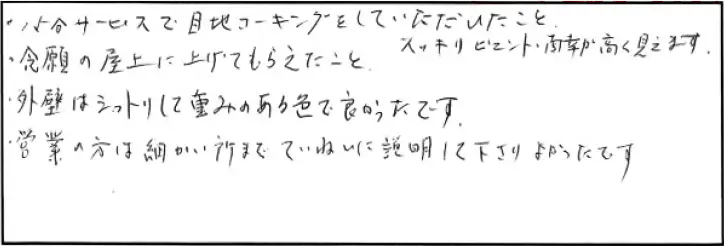 ・サービスで目地コーキングをしていただいたこと。
スッキリ
高く見えます。
・念願の屋上に上げてもらえたこと。
・外壁はシットリして重みのある色で良かったです。
・営業の方は細かい所までていねいに説明して下さりよかったです